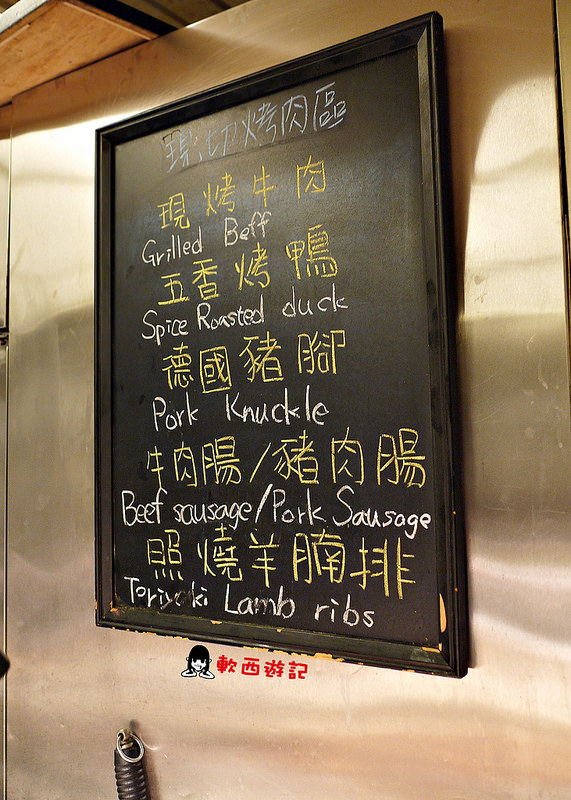 現切烤肉區
現烤牛肉
Grilled Beff
五香烤鴨
Spice Roasted duck
德國豬腳
Pork Knuckle
牛肉腸/豬肉腸
Beef sausage/Pork Sausage
照燒羊腩排
Teriyaki Lamb ribs
軟西遊記